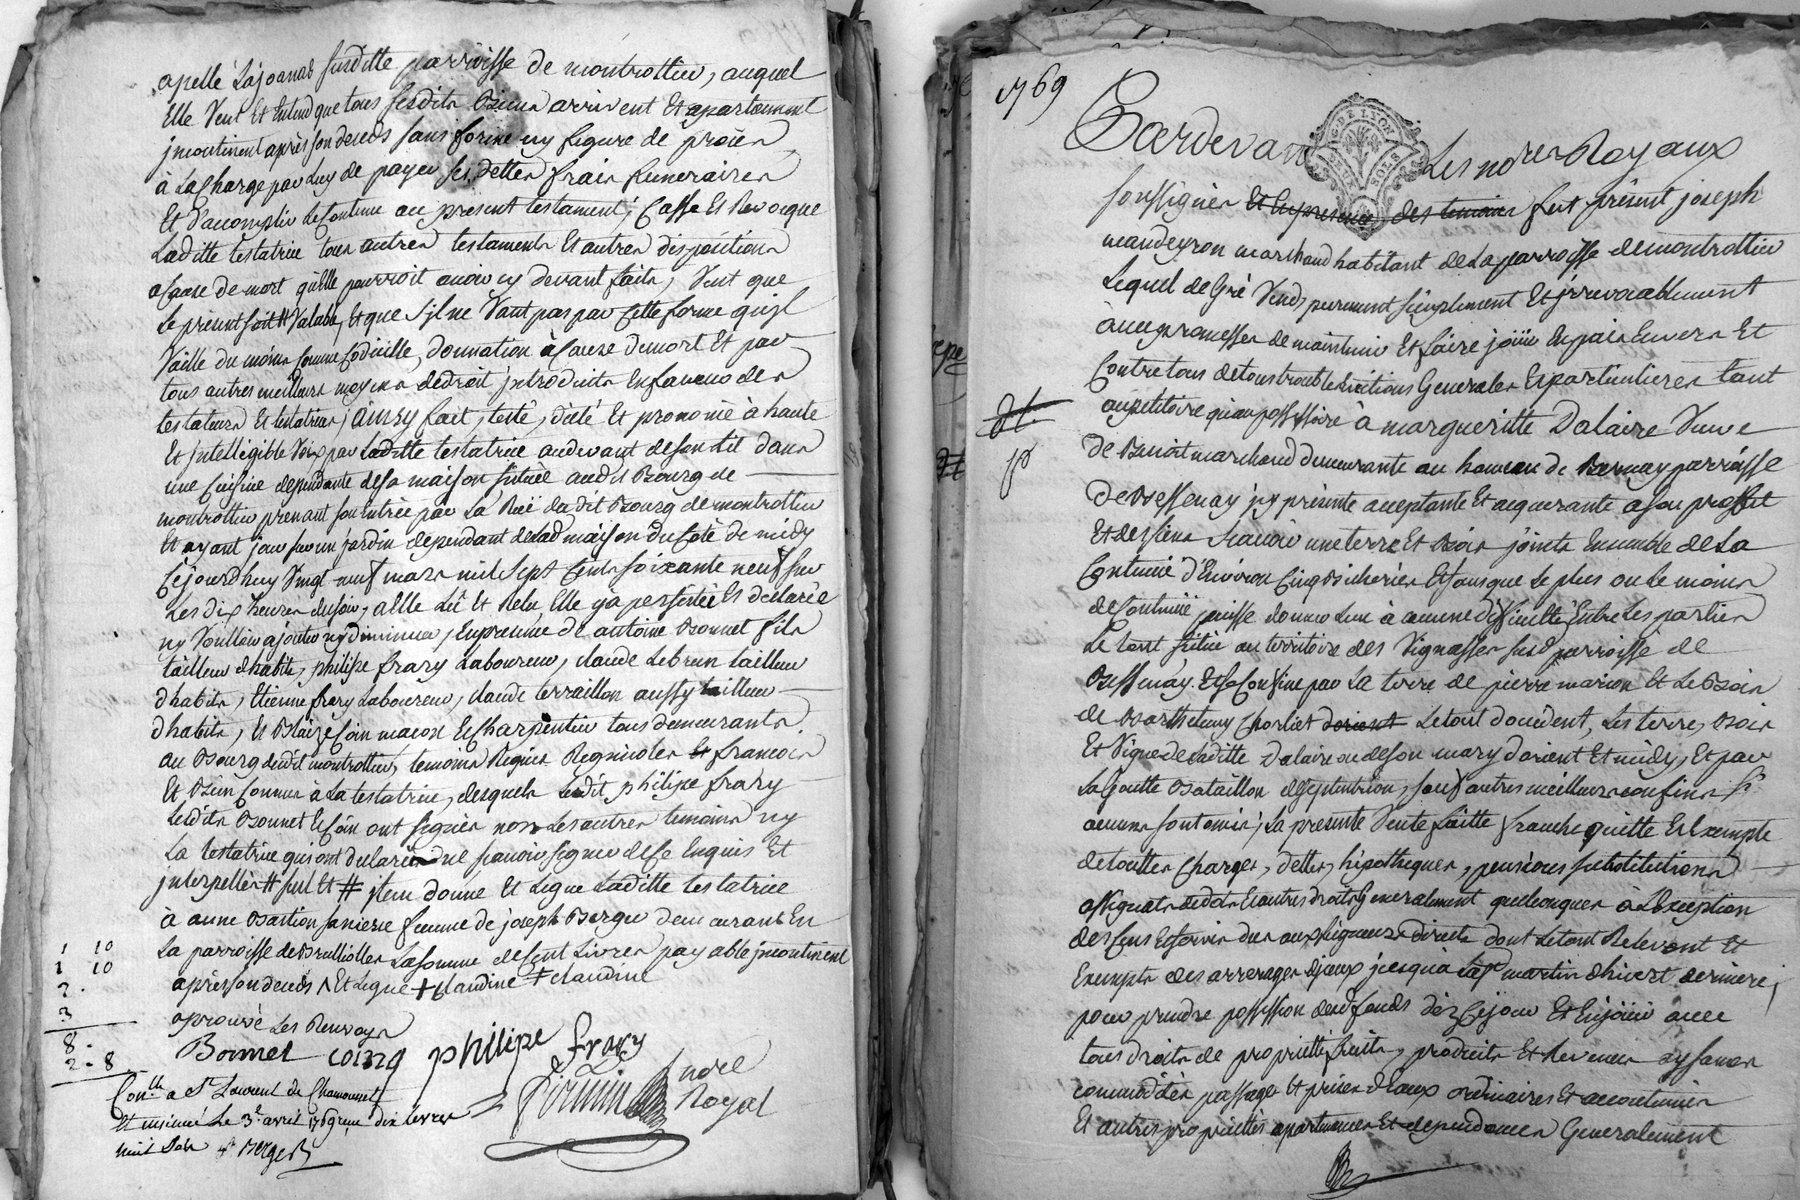 apellé Lajoanas susditte parroisse de montrottier, auquel
Elle Veut Et Entend que tous sesdits Biens arrivent Et apartiennent
jncontinent après son deceds sans forme ny figure de procès
à La Charge par Luy de payer ses dettes frais funeraires
Et D'acomplir Le Contenu au present testament; Casse Et Revocque
Laditte testatrice tous autres testaments Et autres dispositions
a Cause de mort qu'elle pourroit avoir cy devant faits, Veut que
Le present soit # Valable, Et que S'jl ne Vaut pas par Cette forme qu'jl
Vaille du moins Comme Codicille, donnation à Cause de mort Et par
tous autres meilleurs moyens de droit jntroduits En faveur des
testateurs Et testatrices, ainsy fait, testé, dicté Et prononcé à haute
Et jntelligible Voix par Laditte testatrice au devant de son Lit dans
une Cuisine dependante de sa maison située audit Bourg de
montrottier prenant son Entrée par La Rüe dudit Bourg de montrottier
Et ayant jour sur un jardin dependant de lad maison du Côté de midy
Cejourd'huy Vingt neuf mars mil Sept Cents soixante neuf sur
Les dix heures du soir, a Elle Lû Et Relu, Elle y a persisté Et declaré
ny Voulloir ajouter ny diminuer, En presence de antoine Bonnet fils
tailleur d'habits, philipe frary Laboureur, claude Lebrun tailleur
d'habits, Etienne frary Laboureur, claude terraillon aussy tailleur
d'habits, Et Blaize Coin macon Et Charpentier tous demeurants
au Bourg dudit montrottier, temoins Requis Regnicoles Et francois
Et Bien Connus à La testatrice, desquels Ledit philipe frary
Lesdits Bonnet Et Coin ont signés non Les autres temoins ny
La testatrice qui ont declarés ne sçavoir signer de Ce Enquis Et
jnterpellés # seul Et # jtem donne Et Legue Laditte testatrice
à anne Bastion saniere femme de joseph Berger demeurants En
La parroisse de Brulliolles La somme de Cent Livres payable jncontinent
après son deceds Et Legué + claudine + claudine
aprouvé Les Renvoys
1 10
1 10
2 .
3
8 .
2 . 8
Bonnet coing philipe frary
Pirmin nore Royal
Con.lé a St Laurent de Chamousset
Et insinué Le 3e avril 1769 reçu dix livres
huit sols Berger
1769
Pardevant Les nores Royaux
soussignés Et En presence des temoins fut présent joseph
maudeyron marchand habitant de La parroisse de montrottier
Lequel de Gré Vend, purement simplement Et jrrevocablement
avec promesses de maintenir Et faire joüir En paix Envers Et
Contre tous de tous troubles Evictions Generales Et particulieres tant
au petitoire qu'au possessoire à margueritte Dalaire Veuve
de Benoit marchand demeurante au hameau de Bernay parroisse
De Bessenay jcy présente acceptante Et acquerante a son proffit
Et des siens Scavoir une terre Et Bois joints Ensemble de La
Contenüe d'Environ Cinq bicherées Et sans que Le plus ou Le moins
de Contenüe puisse donner Lieu à aucune difficulté Entre Les parties
Le tout situé au territoire des Vignasses susd parroisse de
Bessenay. Et Se Confine par La terre de pierre marion Et Le Bois
de Barthelemy Chorliet dorient Le tout d'occident, Les terre, Bois
Et Vigne de Laditte Dalaire ou de son mary d'orient Et midy, Et par
La Goutte Bataillon de septentrion, sauf autres meilleurs confins si
aucuns sont omis; La presente Vente faitte franche quitte Et Exempte
de touttes Charges, dettes, hipotheques, pensions substitutions
assignats de dots Et autres droits Generalement quelconques à L'Exception
des Cens Et servis dus aux seigneurs directs dont Le tout Relevent Et
Exempts des arrerages d'jceux jusqu'a La St martin d'hivert derniere;
pour prendre possession desd fonds dèz Cejour Et En joüir avec
tous droits de proprietté, fruits, produits Et Revenus aysances
commodités passages Et prises d'Eaux ordinaires Et accoutumées
Et autres proprietés apartenances Et dependances Generalement
G. DE LYON
DEUX SOLS